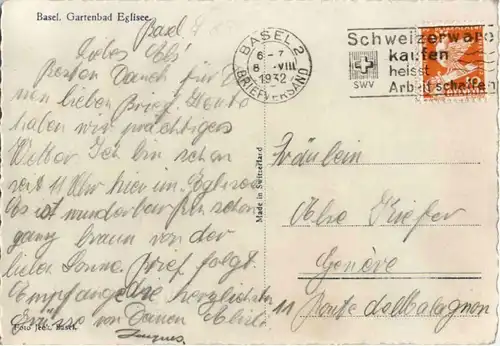 Basel. Gartenbad Eglisee.
Basel
Liebes Elsi
Besten Dank für
nen lieben Brief. Heute
haben wir prächtiges
Wetter Ich bin schon
seit 11 Uhr hier im Eglisee
Es ist wunderbar bin schon
ganz braun von der
lieben Sonne. Brief folgt.
Empfange die herzlichsten
Grüsse von Deinem
Jacques
Foto Jeck, Basel.
Made in Switzerland
BASEL 2
6-7
8.VIII
1932
BRIEFVERSAND
Schweizerware
kaufen
heisst
Arbeit schaffen
SWV
10
Fräulein
Else Kiefer
Genève
11 Route de Malagnou